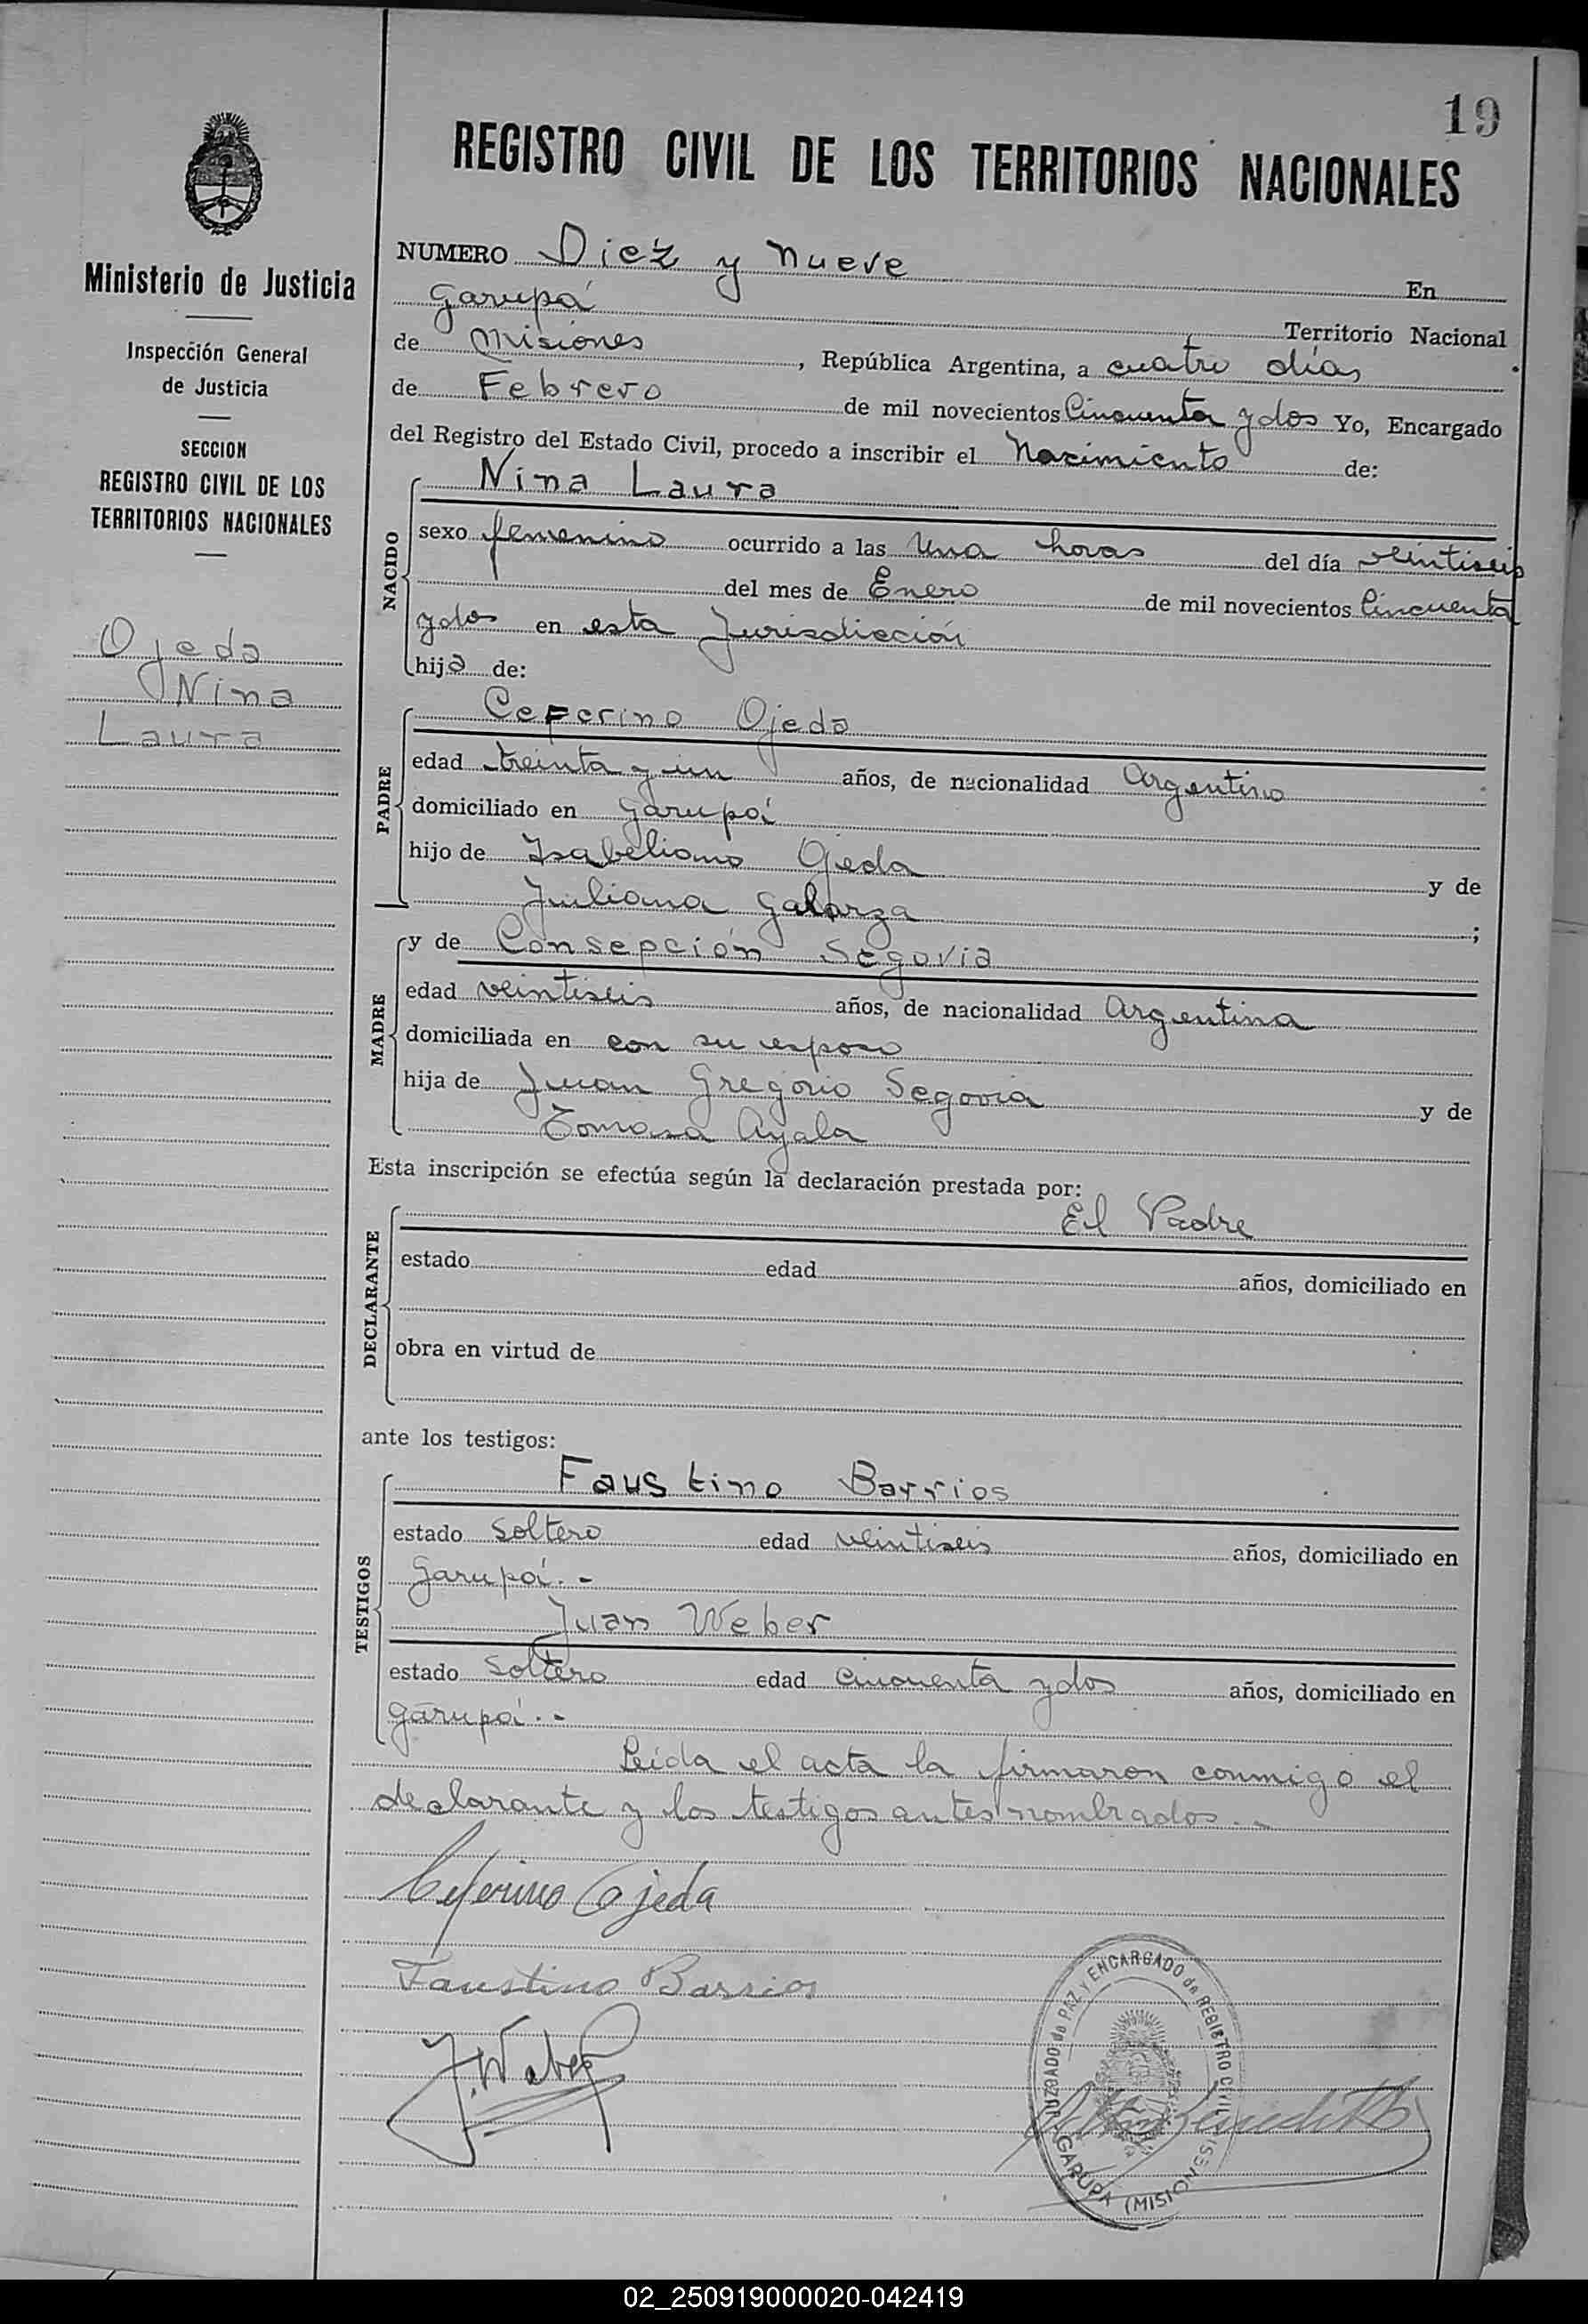 19
REGISTRO CIVIL DE LOS TERRITORIOS NACIONALES
Ministerio de Justicia
Inspección General
de Justicia
SECCION
REGISTRO CIVIL DE LOS
TERRITORIOS NACIONALES
Ojeda
Nina
Laura
NUMERO Diez y nueve En
Garupá Territorio Nacional
de Misiones, República Argentina, a cuatro días
de Febrero de mil novecientos Cincuenta y dos Yo, Encargado
del Registro del Estado Civil, procedo a inscribir el Nacimiento de:
NACIDO
Nina Laura
sexo femenino ocurrido a las Una horas del día veintiseis
del mes de Enero de mil novecientos Cincuenta
y dos en esta Jurisdicción
hija de:
PADRE
Ceferino Ojeda
edad treinta y un años, de nacionalidad Argentino
domiciliado en Garupá
hijo de Isabeliano Ojeda y de
Juliana Galarza;
MADRE
y de Consepción Segovia
edad veintiseis años, de nacionalidad Argentina
domiciliada en con su esposo
hija de Juan Gregorio Segovia y de
Tomasa Ayala
Esta inscripción se efectúa según la declaración prestada por:
DECLARANTE
El Padre
estado edad años, domiciliado en
obra en virtud de
ante los testigos:
TESTIGOS
Faustino Barrios
estado Soltero edad veintiseis años, domiciliado en
Garupá.-
Juan Weber
estado Soltero edad cincuenta y dos años, domiciliado en
Garupá.-
Leida el acta la firmaron conmigo el
declarante y los testigos antes nombrados.-
Ceferino Ojeda
Faustino Barrios
J. Weber
JUZGADO de PAZ Y ENCARGADO de REGISTRO CIVIL
GARUPA (MISIONES)
02_250919000020-042419